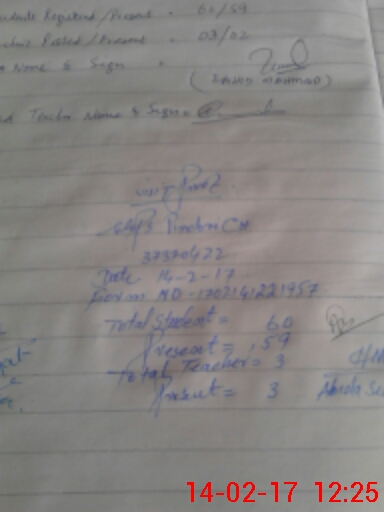 Students Registered/Present - 60/59
Posted/Present - 03/02
Name & Sign -
(ZAHID MAHMAD)
Teacher Name & Sign =
visit Proof
37370422
Date 14-2-17
Form NO - 1702141221957
Total Student = 60
Present = 59
Total Teacher = 3
Present = 3
14-02-17 12:25